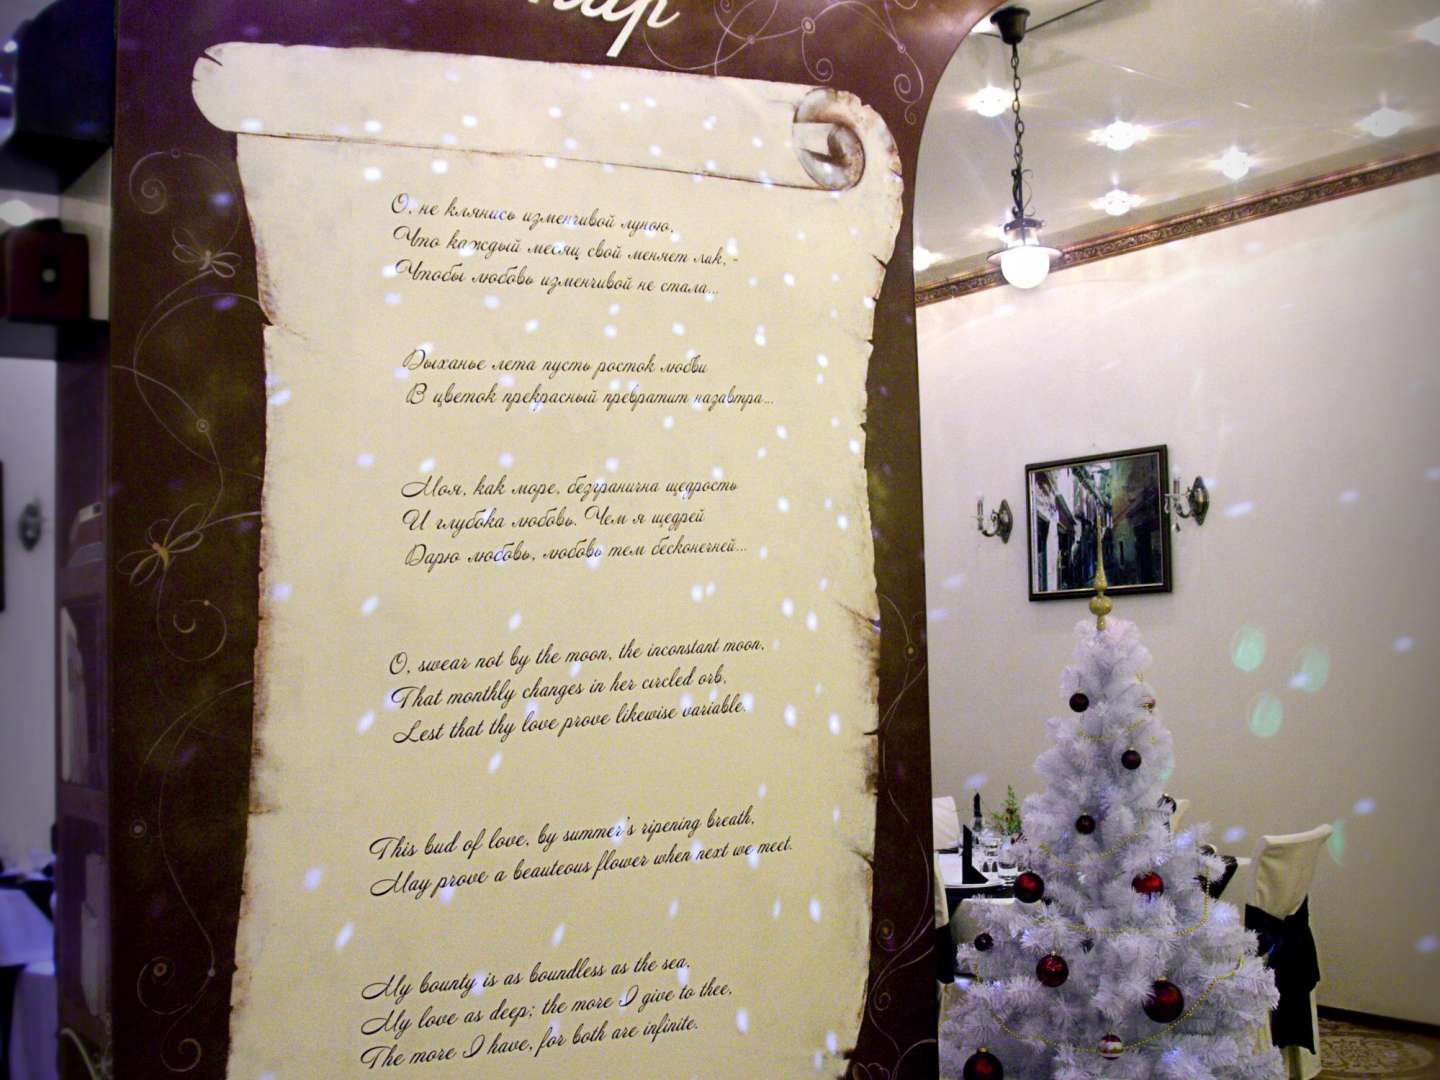 О, не клянись изменчивой луною,
Что каждый месяц свой меняет лик, -
Чтобы любовь изменчивой не стала...
Дыханье лета пусть росток любви
В цветок прекрасный превратит назавтра...
Моя, как море, безгранична щедрость
И глубока любовь. Чем я щедрей
Дарю любовь, любовь тем бесконечней...
O, swear not by the moon, the inconstant moon,
That monthly changes in her circled orb,
Lest that thy love prove likewise variable.
This bud of love, by summer's ripening breath,
May prove a beauteous flower when next we meet.
My bounty is as boundless as the sea,
My love as deep; the more I give to thee,
The more I have, for both are infinite.